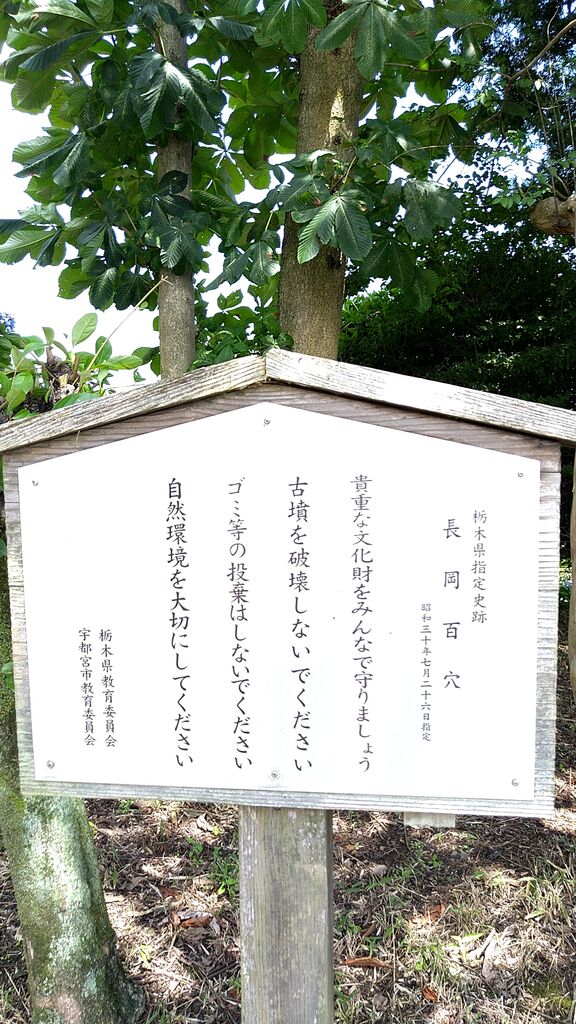 栃木県指定史跡
長岡百穴
昭和三十年七月二十六日指定
貴重な文化財をみんなで守りましょう
古墳を破壊しないでください
ゴミ等の投棄はしないでください
自然環境を大切にしてください
栃木県教育委員会
宇都宮市教育委員会